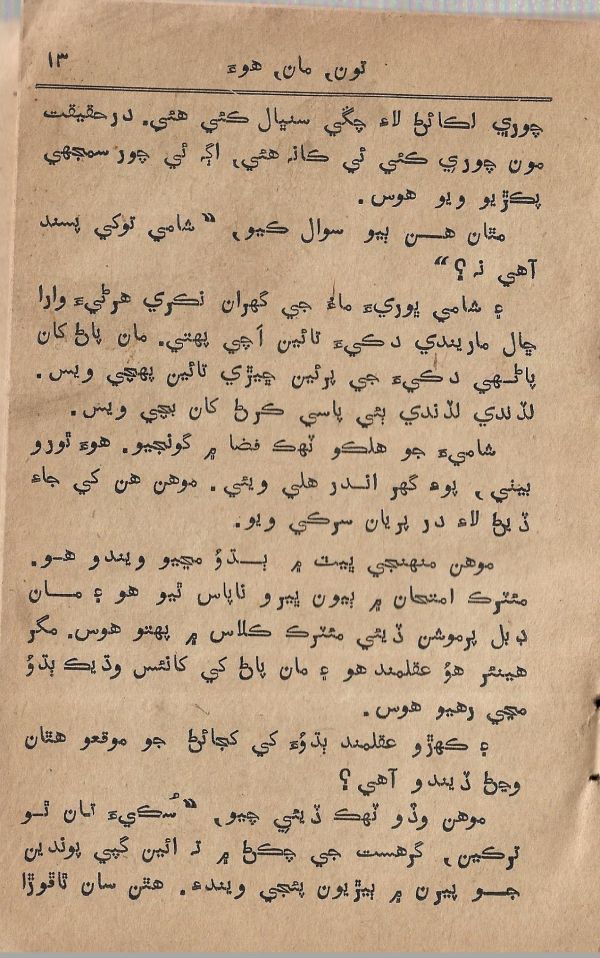 تون، مان، هوءَ ۱۳
چوري اڪائڻ لاءِ چڱي سنڀال ڪئي هئي. درحقيقت
مون چوري ڪئي ئي ڪانہ هئي، اڳہ ئي چور سمجهي
پڪڙيو ويو هوس.
مٿان هن ٻيو سوال ڪيو، ”شامي توکي پسند
آهي نہ؟“
۽ شامي ڀوريءَ ماءُ جي گهران نڪري هرڻيءَ وارا
ڇال ماريندي دڪيءَ تائين اَچي پهتي. مان پاڻ کان
پاڻهي دڪيءَ جي پرئين ڇيڙي تائين پهچي ويس.
لڏندي لڏندي ٻئي پاسي ڪرڻ کان بچي ويس.
شاميءَ جو هلڪو ٽهڪ فضا ۾ گونجيو. هوءَ ٿورو
بيٺي، پوءِ گهر اندر هلي ويئي. موهن هن کي جاءِ
ڏيڻ لاءِ در پريان سرڪي ويو.
موهن منهنجي ڀيٽ ۾ ٻڌوُ مڃيو ويندو هو.
مئٽرڪ امتحان ۾ ٻيون ڀيرو ناپاس ٿيو هو ۽ مان
ڊبل پرموشن ڏيئي مئٽرڪ ڪلاس ۾ پهتو هوس. مگر
هينئر هوُ عقلمند هو ۽ مان پاڻ کي کانئس وڌيڪ ٻڌوُ
مڃي رهيو هوس.
۽ ڪهڙو عقلمند ٻڌوُءَ کي کڄائڻ جو موقعو هٿان
وڃڻ ڏيندو آهي؟
موهن وڏو ٽهڪ ڏيئي چيو، ”سُڪيءَ تان ٿو
ترڪين، گرهست جي چڪڻ ۾ تہ ائين گپي پوندين
جو پيرن ۾ ٻيڙيون پئجي ويندءِ. هٿن سان ٿاڦوڙا